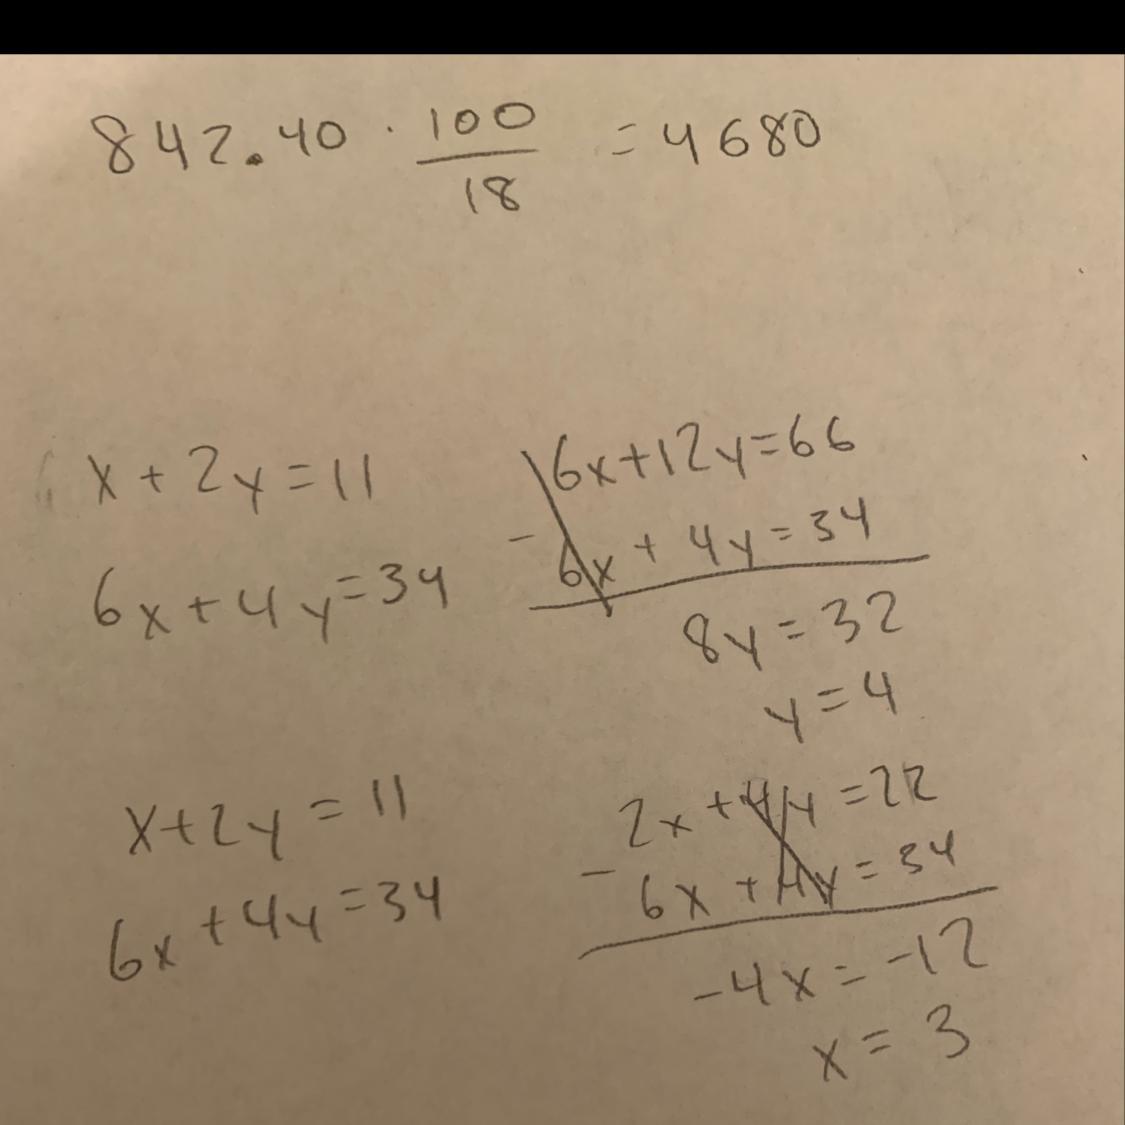 842.40 · 100/18 = 4680
x + 2y = 11
6x + 4y = 34
6x + 12y = 66
- 6x + 4y = 34
8y = 32
y = 4
x + 2y = 11
6x + 4y = 34
2x + 4y = 22
- 6x + 4y = 34
-4x = -12
x = 3